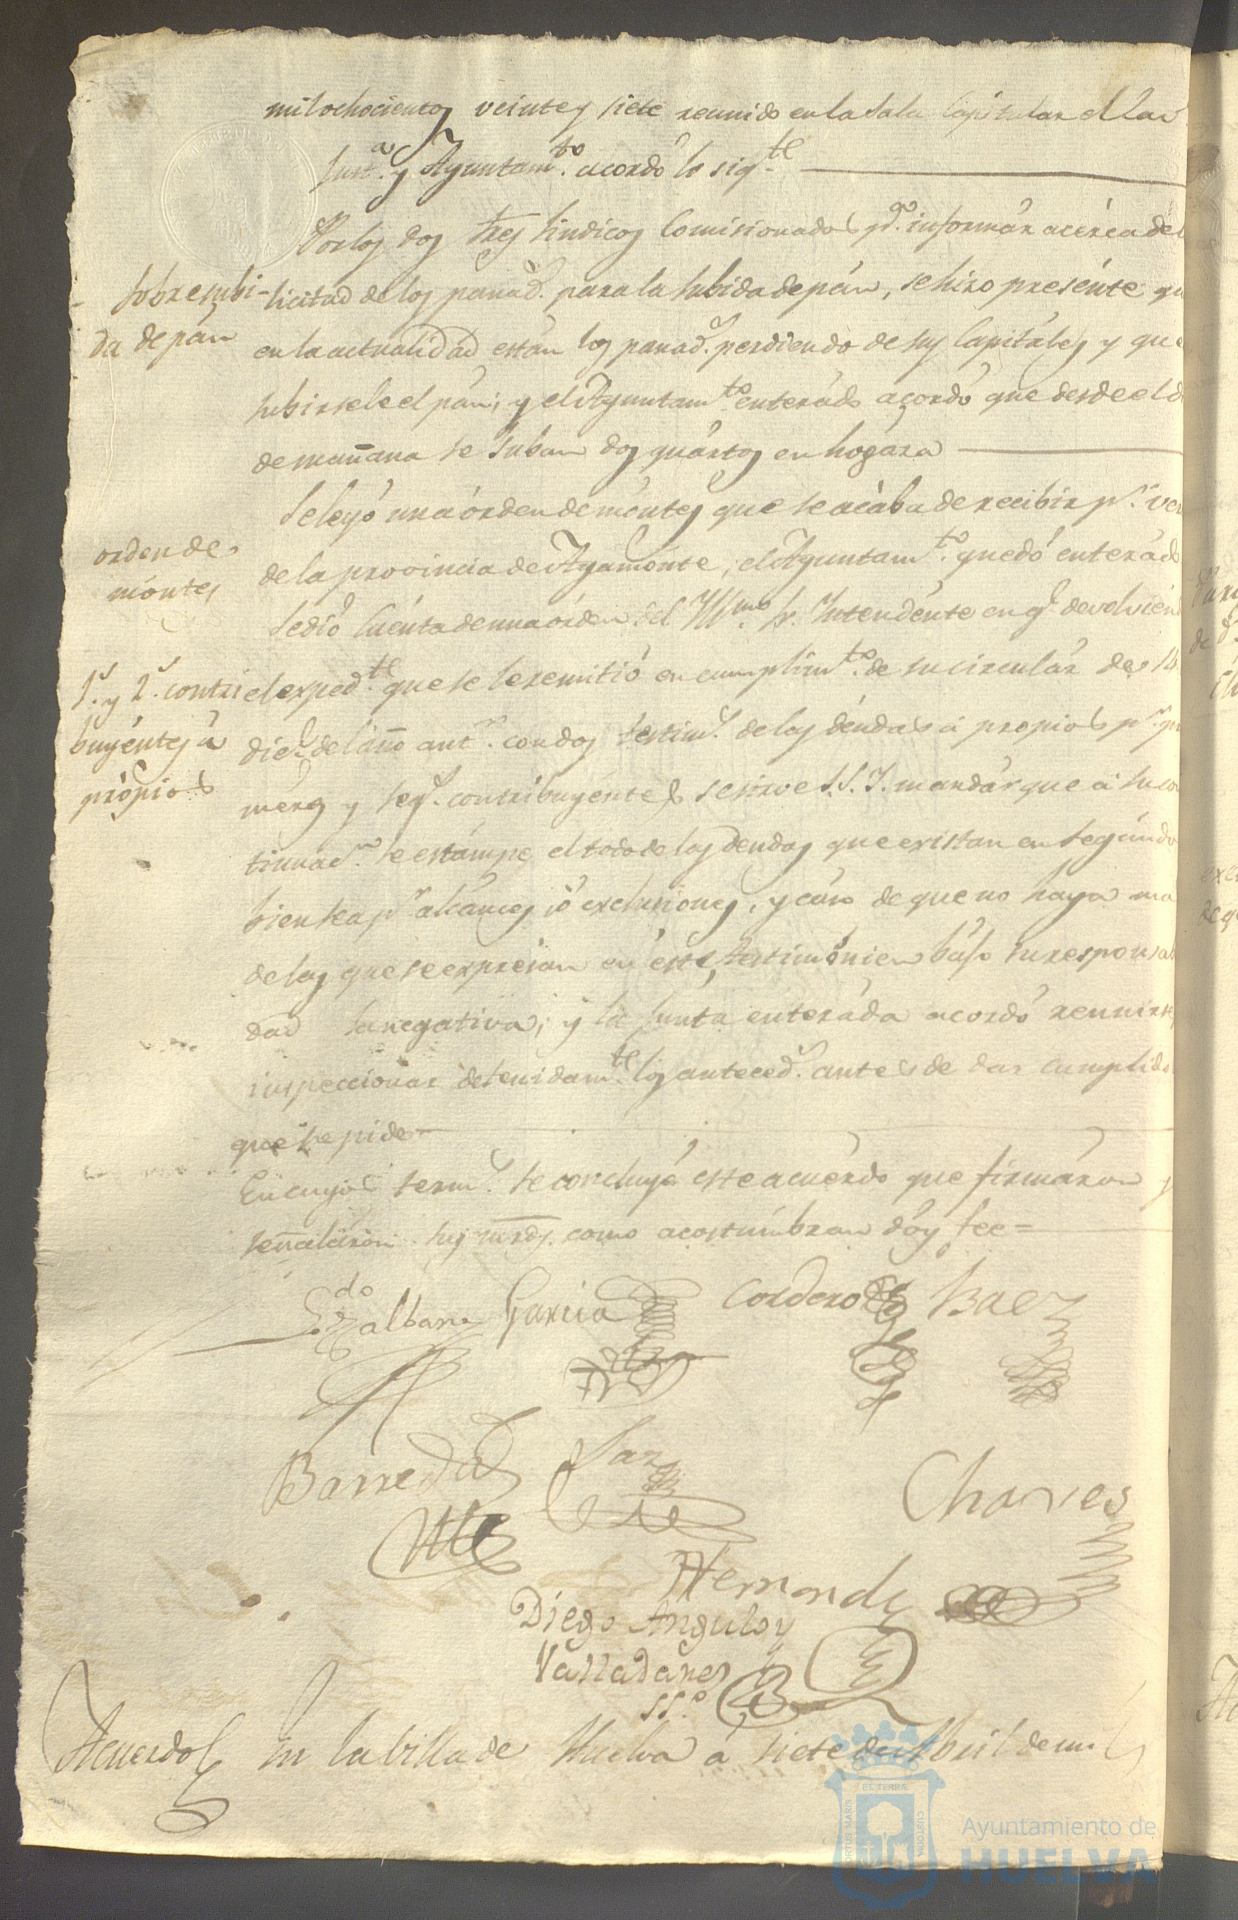 mil ochocientos veinte y siete reunido en la Sala Capitular el Ilar
Junt.ª y Ayuntam.to acordó lo sig.te
Por los dos Sres Sindicos Comisionados p.ª informár acérca de
Sobre subi-
da de pán
licitud de los panad.s para la subida de pán, se hizo presénte qu
en la actualidád están los panad.s perdiendo de sus Capitáles y que
subirsele el pán; y el Ayuntam.to enterádo acordó que desde el d
de mañana se suban dos quártos en hogaza
orden de
móntes
Se leyó una órden de móntes que se acába de recibir p.r ver
de la provincia de Ayamónte, el Ayuntam.to quedó enterádo
1.s y 2.s contri
buyéntes á
própios
Se dió Cuénta de una órden del Yll.mo Sr. Yntendénte en g.l devolvién
el exped.te que se le remitió en cumplim.to de su circulár de 14
dic.e del año ant.r con dos testim.s de las déudas á propios p.r pr
méros y seg.s contribuyéntes se sirve S.S.Y. mandár que á su co
tinuac.n se estámpe el todo de las deudas que existan en segúndo
bien sea p.r alcánces ó exclusiones, y cáso de que no haya ma
de las que se exprésan en éste, testimónien bájo su responsab
dad la negativa; y la Junta enteráda acordó reunirse,
inspeccionar detenidam.te los anteced.s antes de dar cumplido
que se pide
En cuyos term.s se concluyó este acuérdo que firmáron y
señaláron sus mrds. como acostúmbran dóy fee=
L.do albar Garcia Cordero Baez
Barreda Saz Charies
Hernandz
Diego Angulo y
Valladares
SS.º
Acuerdo En la billa de Huelva á siete de Abril de mil
PORTUS MARIS
ET TERRA
CUSTODIA
Ayuntamiento de
HUELVA